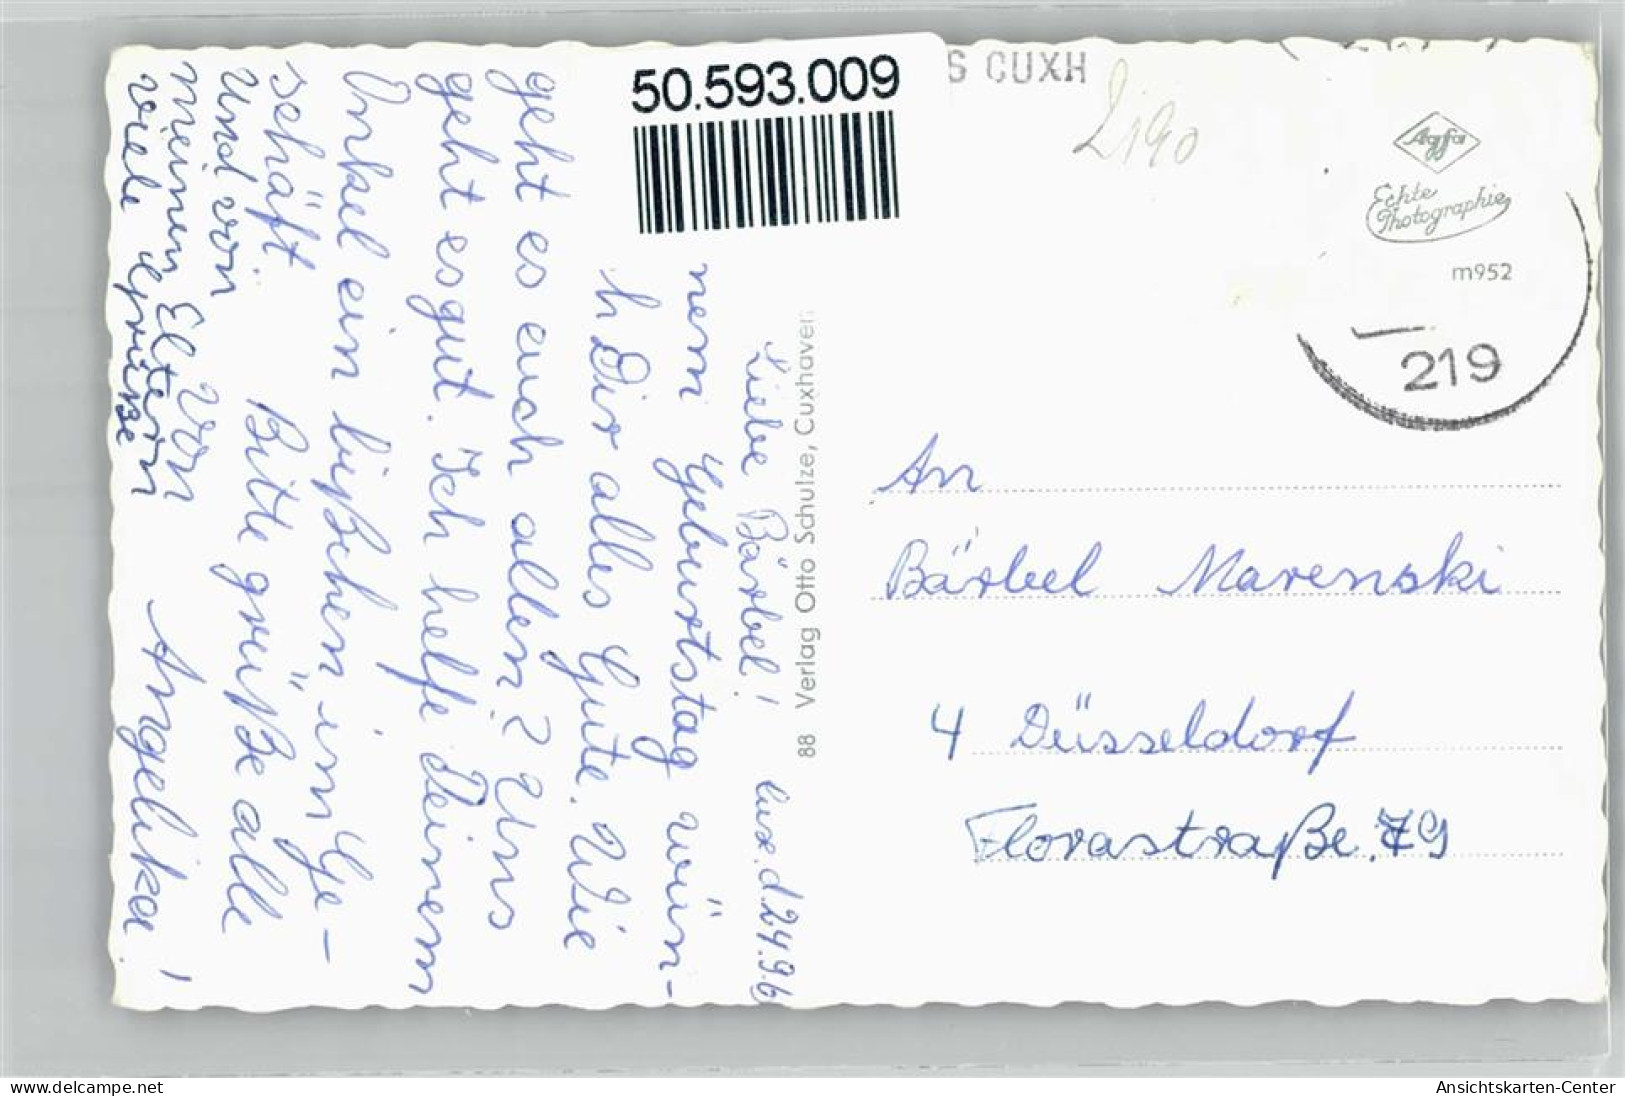 50.593.009
S CUXH
2,90
Agfa
Echte
Photographie
m952
219
Liebe Bärbel! Cux.d.24.9.6
nem Geburtstag wün-
h Dir alles Gute. Wie
geht es euch allen? Uns
geht es gut. Ich helfe Deinem
Onkel ein bißchen im Ge-
schäft. Bitte grüße alle
Und von
meinen Eltern
viele Grüße
von
Angelika!
88 Verlag Otto Schulze, Cuxhaven
An
Bärbel Marenski
4 Düsseldorf
Florastraße 79
delcampe.net
Ansichtskarten-Center